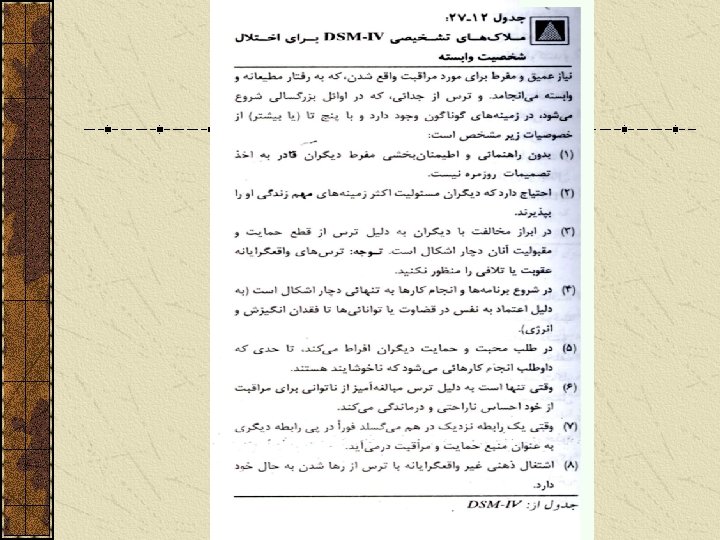 جدول ۱۲ـ۲۷:
مـلاک‌هـای تـشـخیصی DSM-IV بـرای اخـتـلال
شخصیت وابسته
نیاز عمیق و مفرط برای مورد مراقبت واقع شدن، که به رفتار مطیعانه و
وابسته می‌انجامد. و ترس از جدائی، که در اوائل بزرگسالی شروع
می‌شود، در زمینه‌های گوناگون وجود دارد و با پنج تا (یا بیشتر) از
خصوصیات زیر مشخص است:
(۱) بدون راهنمائی و اطمینان‌بخشی مفرط دیگران قادر به اخذ
تصمیمات روزمره نیست.
(۲) احتیاج دارد که دیگران مسئولیت اکثر زمینه‌های مهم زندگی او را
بپذیرند.
(۳) در ابراز مخالفت با دیگران به دلیل ترس از قطع حمایت و
مقبولیت آنان دچار اشکال است. تـوجه: ترس‌های واقعگرایانه
عقوبت یا تلافی را منظور نکنید.
(۴) در شروع برنامه‌ها و انجام کارها به تنهائی دچار اشکال است (به
دلیل اعتماد به نفس در قضاوت یا توانائی‌ها تا فقدان انگیزش و
انرژی).
(۵) در طلب محبت و حمایت دیگران افراط می‌کند، تا حدی که
داوطلب انجام کارهائی می‌شود که ناخوشایند هستند.
(۶) وقتی تنها است به دلیل ترس مبالغه‌آمیز از ناتوانی برای مراقبت
از خود احساس ناراحتی و درماندگی می‌کند.
(۷) وقتی یک رابطه نزدیک در هم می‌گسلد فوراً در پی رابطه دیگری
به عنوان منبع حمایت و مراقبت درمی‌آید.
(۸) اشتغال ذهنی غیر واقعگرایانه با ترس از رها شدن به حال خود
دارد.
جدول از: DSM-IV